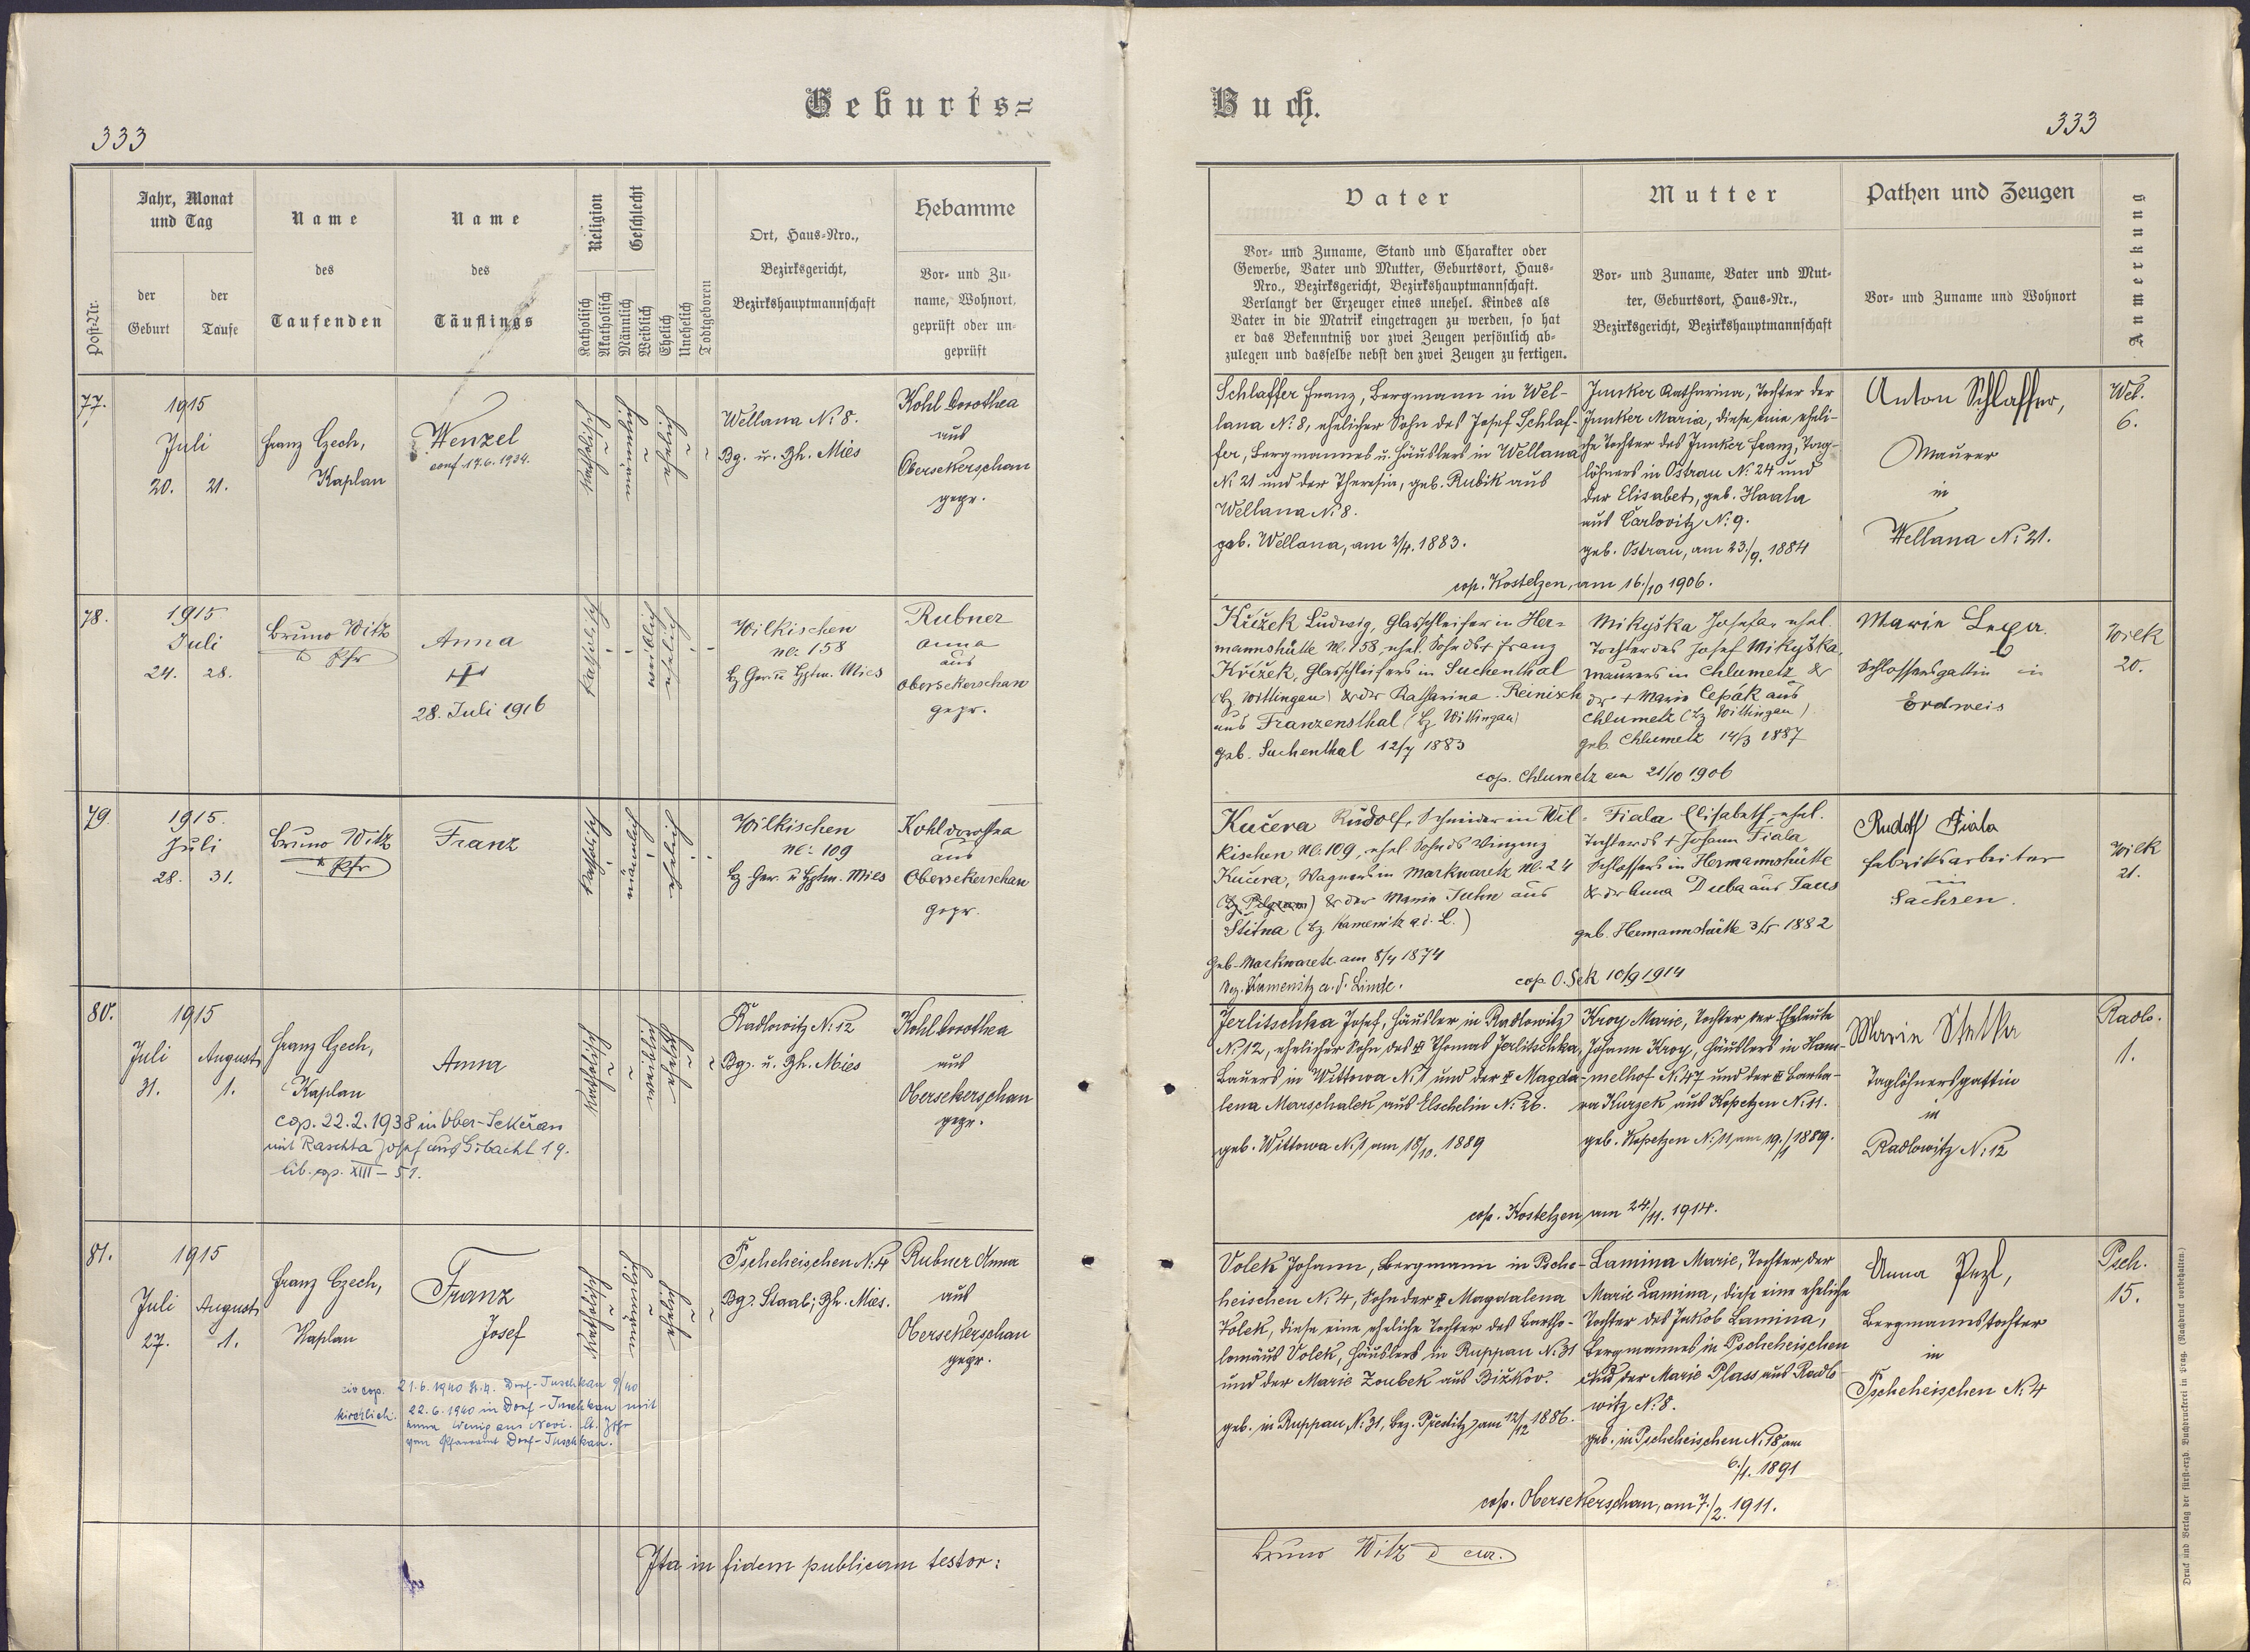 Geburts=
Buch.
333
333
Post-Nr.
Jahr, Monat
und Tag
der
Geburt
der
Taufe
Name
des
Taufenden
Name
des
Täuflings
Religion
Katholisch
Akatholisch
Geschlecht
Männlich
Weiblich
Ehelich
Unehelich
Todtgeboren
Ort, Haus-Nro.,
Bezirksgericht,
Bezirkshauptmannschaft
Hebamme
Vor- und Zu-
name, Wohnort,
geprüft oder un-
geprüft
Vater
Vor- und Zuname, Stand und Charakter oder
Gewerbe, Vater und Mutter, Geburtsort, Haus-
Nro., Bezirksgericht, Bezirkshauptmannschaft.
Verlangt der Erzeuger eines unehel. Kindes als
Vater in die Matrik eingetragen zu werden, so hat
er das Bekenntniß vor zwei Zeugen persönlich ab-
zulegen und dasselbe nebst den zwei Zeugen zu fertigen.
Mutter
Vor- und Zuname, Vater und Mut-
ter, Geburtsort, Haus-Nr.,
Bezirksgericht, Bezirkshauptmannschaft
Pathen und Zeugen
Vor- und Zuname und Wohnort
Anmerkung
77.
1915
Juli
20. 21.
Franz Czech,
Kaplan
Wenzel
conf. 17.6.1934.
katholisch
männlich
ehelich
Wellana N: 8.
Bg. u. Bh. Mies
Kohl Dorothea
aus
Obersekerschan
gepr.
Schlaffer Franz, Bergmann in Wel-
lana N: 8, ehelicher Sohn des Josef Schlaf-
fer, Bergmannes u. Häuslers in Wellana
N: 21 und der Theresia, geb. Rubik aus
Wellana N: 8.
geb. Wellana, am 2/4. 1883.
Junker Katharina, Tochter der
Junker Maria, diese eine eheli-
che Tochter des Junker Franz, Tag-
löhners in Ostrau N: 24 und
der Elisabet, geb. Haala
aus Čarlovitz N: 9.
geb. Ostrau, am 23./9. 1884
cop. Kostelzen, am 16./10 1906.
Anton Schlaffer,
Maurer
in
Wellana N: 21.
Wel.
6.
78.
1915
Juli
24. 28.
Bruno Witz
Pfr
Anna
28. Juli 1916
katholisch
weiblich
ehelich
Wilkischen
N: 158
Bz Ger u Hptm. Mies
Rubner
Anna
aus
Obersekerschan
gepr.
Křížek Ludwig, Glasschleifer in Her-
mannshütte N. 158, ehel. Sohn ds + Franz
Křížek, Glasschleifers in Suchenthal
(Bz Wittingau) & der Katharina Reinisch
aus Franzensthal (Bz Wittingau)
geb. Suchenthal 12/7 1883
Mikyška Josefa, ehel.
Tochter des Josef Mikyška,
Maurers in Chlumetz &
dr + Marie Cepák aus
Chlumetz (Bz Wittingau)
geb. Chlumetz 14/3 1887
cop. Chlumetz am 21/10 1906
Marie
Schlossersgattin in
Erdweis
Wilk
20.
79.
1915.
Juli
28. 31.
Bruno Witz
Pfr
Franz
katholisch
männlich
ehelich
Wilkischen
N: 109
Bz Ger. u Hptm. Mies
Kohl Dorothea
aus
Obersekerschan
gepr.
Kučera Rudolf, Schneider in Wil-
kischen N. 109, ehel. Sohn ds Vinzenz
Kučera, Wagners in Markwaretz N. 24
(Bz Pilgram) & der Marie Juhn aus
Štitna (Bz Kamenitz a.d. L.)
Geb. Markwaretz am 8/4 1874
Bez. Kamenitz a. d. Linde.
Fiala Elisabeth, ehel.
Tochter ds + Johann Fiala
Schlossers in Hermannshütte
& dr Anna Duba aus Taus
geb. Hermannshütte 3/5 1882
cop. O. Sek 10/9 1914
Rudolf Fiala
Fabriksarbeiter
in
Sachsen.
Wilk
21.
80.
1915
Juli August
31. 1.
Franz Czech,
Kaplan
Anna
cop. 22.2.1938 in Ober-Sekeran
mit Raschta Josef aus Sibacht 19.
lib. cop. XIII - 51.
katholisch
weiblich
ehelich
Radlowitz N: 12
Bg. u. Bh. Mies
Kohl Dorothea
aus
Obersekerschan
gepr.
Jerlitschka Josef, Häusler in Radlowitz
N: 12, ehelicher Sohn des + Thomas Jerlitschka,
Bauers in Wittowa N: 1 und der + Magda-
lena Marschalek aus Elschelin N: 26.
geb. Wittowa N: 1 am 18/10. 1889
Kroy Marie, Tochter der Eheleute
Johann Kroy, Häuslers in Ham-
melhof N: 47 und der + Barba-
ra Kurzek aus Kopetzen N: 11.
geb. Kopetzen N: 11, am 19./1 1889.
cop. Kostelzen, am 24./11. 1914.
Marie
Taglöhnersgattin
in
Radlowitz N: 12
Radlo.
1.
81.
1915
Juli August
27. 1.
Franz Czech,
Kaplan
Franz
Josef
civ cop. 21.6.1940 St.A. Dorf-Tuschkau 9/40
kirchlich. 22.6.1940 in Dorf-Tuschkau mit
Anna Wenig aus
vom Pfarramt Dorf-Tuschkau.
katholisch
männlich
ehelich
Pscheheischen N: 4
Bg. Staab; Bh. Mies.
Rubner Anna
aus
Obersekerschan
gepr.
Volek Johann, Bergmann in Psche-
heischen N: 4, Sohn der + Magdalena
Volek, diese eine eheliche Tochter des Bartho-
lomäus Volek, Häuslers in Ruppau N: 31
und der Marie Zoubek aus Bižkov.
geb. in Ruppau, N: 31, Bez. Přestitz, am 12/12 1886.
Lamina Marie, Tochter der
Marie Lamina, diese eine eheliche
Tochter des Jakob Lamina,
Bergmannes in Pscheheischen
und der Marie Plass aus Radlo-
witz N: 8.
geb. in Pscheheischen N: 18 am
6./1. 1891
cop. Obersekerschan, am 7./2. 1911.
Anna Pezl,
Bergmannstochter
in
Pscheheischen N: 4
Psch.
15.
Ita in fidem publicam testor:
Bruno Witz cur.
Druck und Verlag der fürst-erzb. Buchdruckerei in Prag. (Nachdruck vorbehalten.)